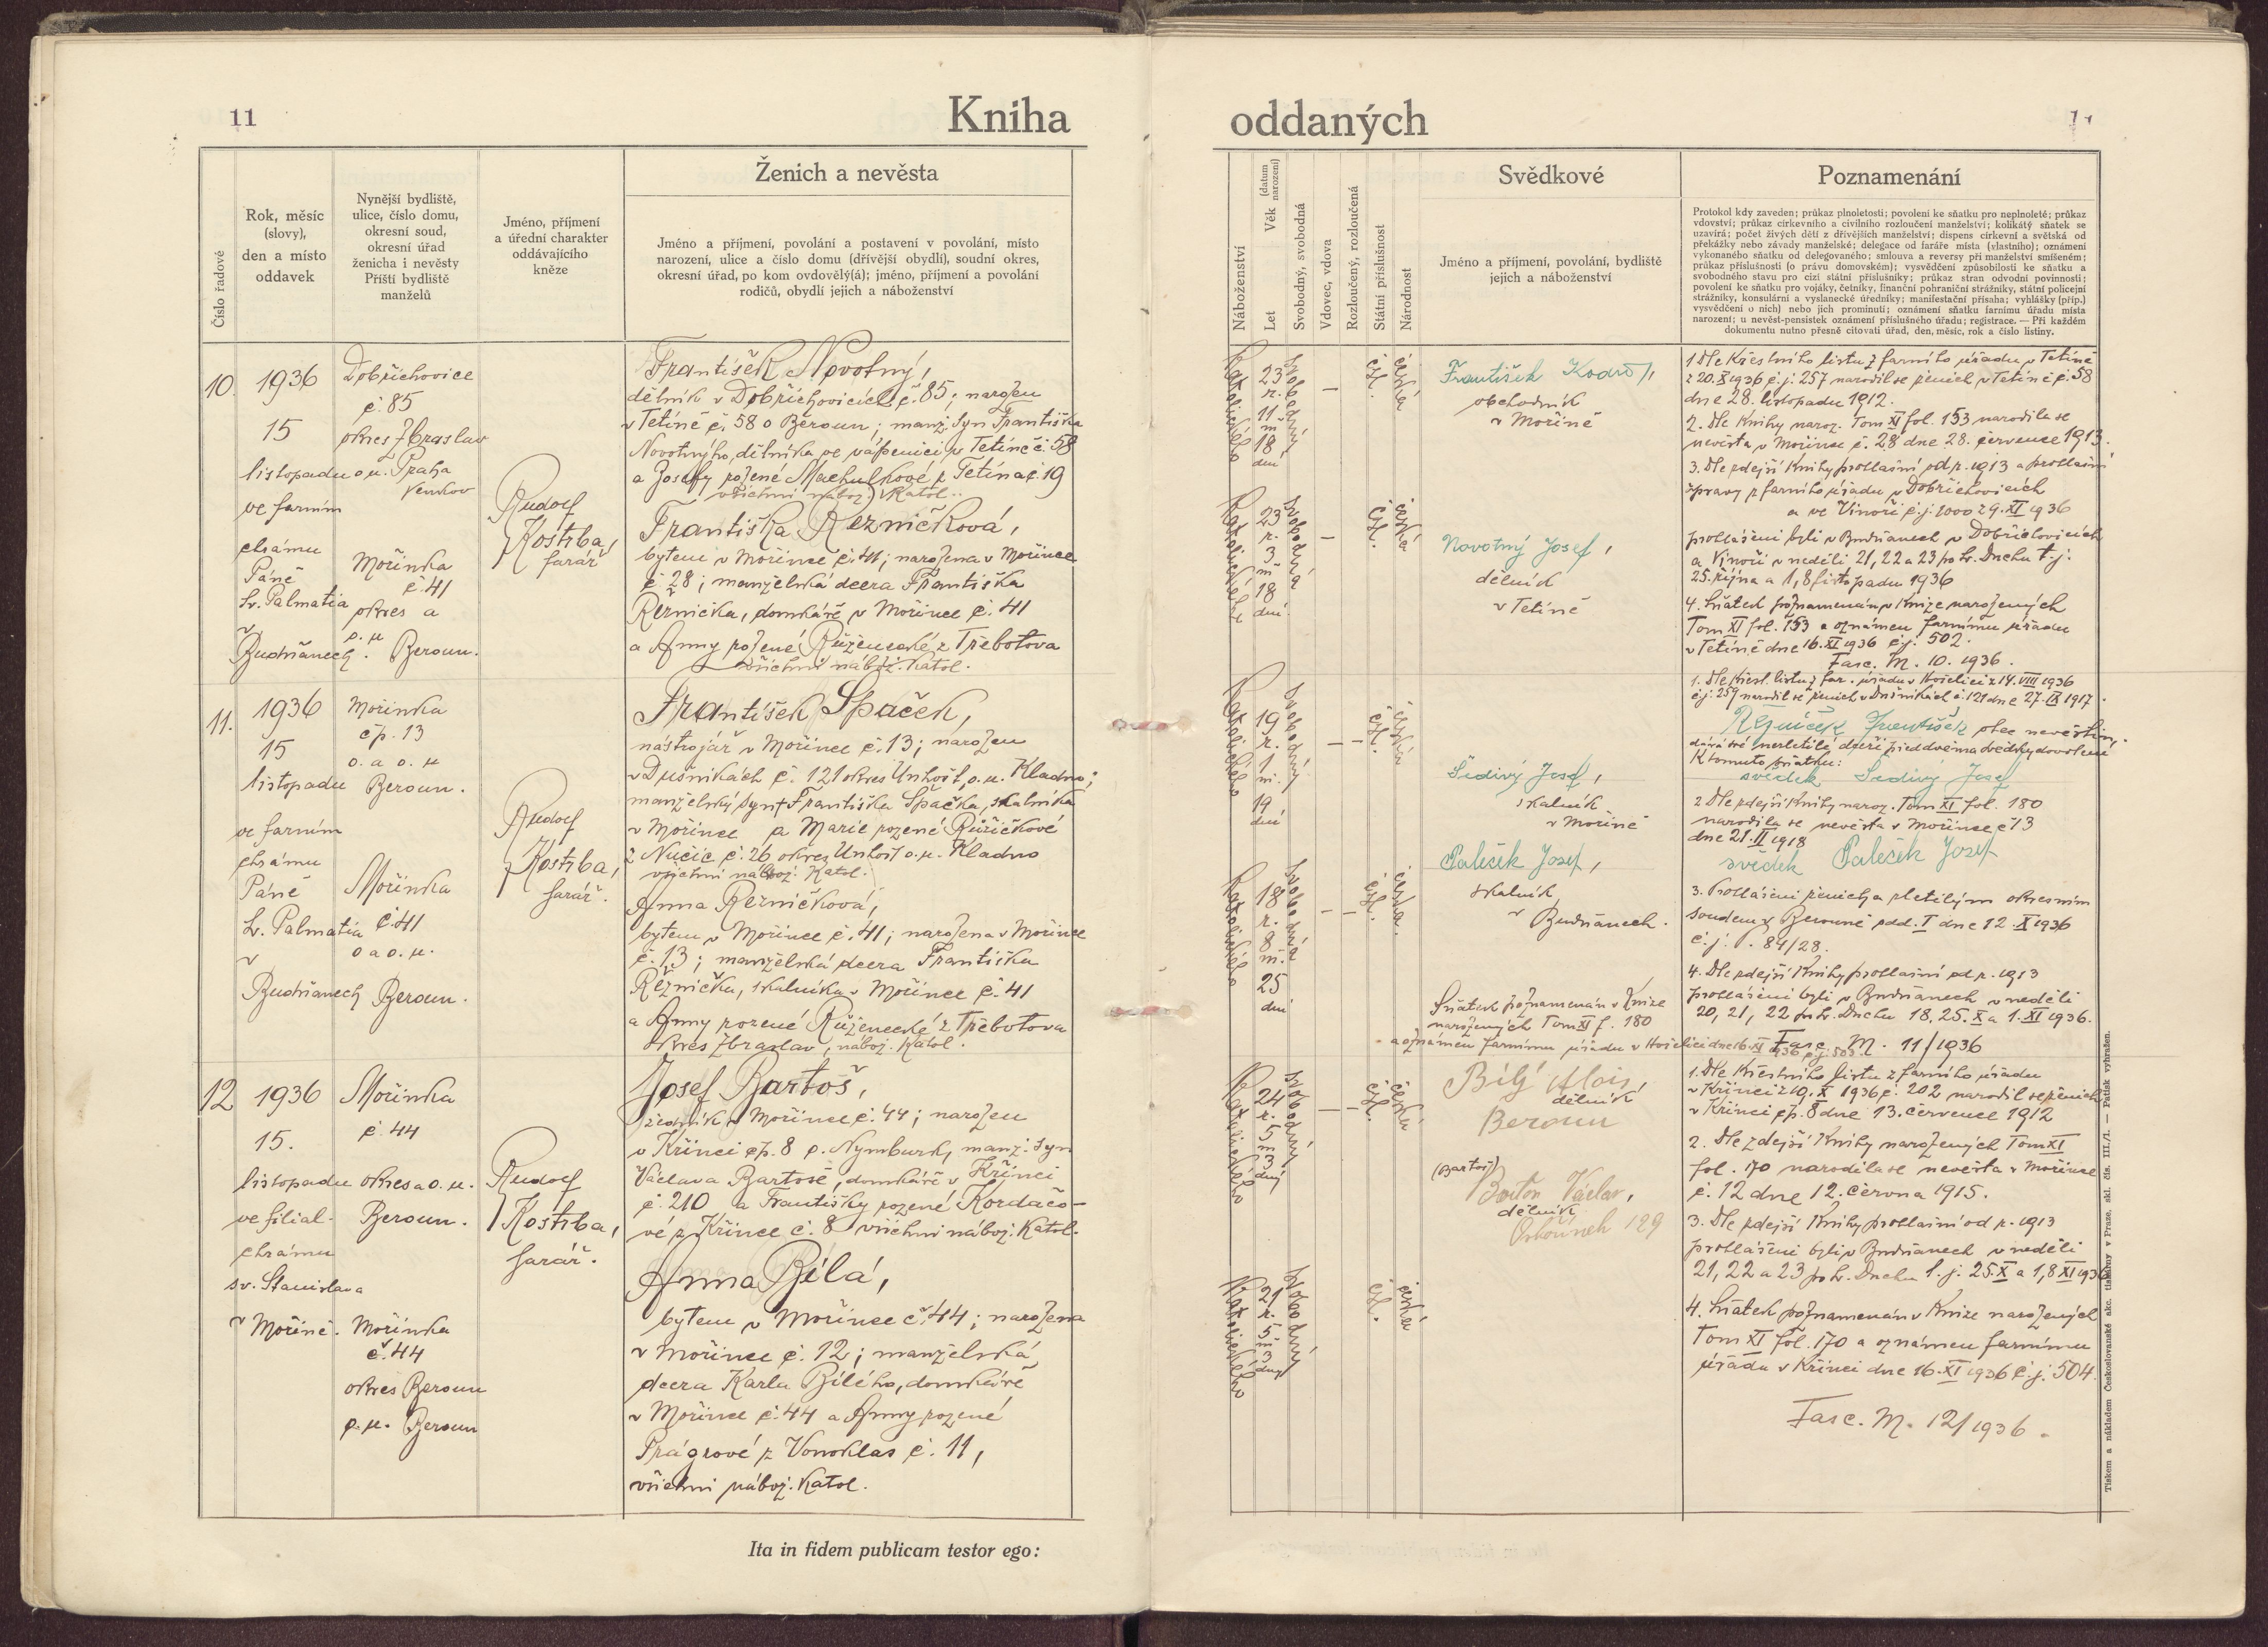 11
Kniha
Číslo řadové
Rok, měsíc
(slovy),
den a místo
oddavek
Nynější bydliště,
ulice, číslo domu,
okresní soud,
okresní úřad
ženicha i nevěsty
Příští bydliště
manželů
Jméno, příjmení
a úřední charakter
oddávajícího
kněze
Ženich a nevěsta
Jméno a příjmení, povolání a postavení v povolání, místo
narození, ulice a číslo domu (dřívější obydlí), soudní okres,
okresní úřad, po kom ovdovělý(á); jméno, příjmení a povolání
rodičů, obydlí jejich a náboženství
10.
1936
15
listopadu
ve farním
chrámu
Páně
sv. Palmatia
v
Budňanech.
Dobřichovice
č. 85
okres Zbraslav
o. u. Praha
venkov
Mořinka
č. 41
okres a
o. u.
Beroun.
Rudolf
Kostrba,
farář
František Novotný,
dělník v Dobřichovicích č. 85; narozen
v Tetíně č. 58 o Beroun; manž. syn Františka
Novotného, dělníka ve vápenici v Tetíně č. 58
a Josefy rozené Machulkové z Tetína č. 19
všichni nábož. katol.
Františka Řezníčková,
bytem v Mořince č. 41; narozena v Mořince
č. 28; manželská dcera Františka
Řezníčka, domkáře v Mořince č. 41
a Anny rozené Růženecké z Třebotova
všichni nábož. katol.
11.
1936
15
listopadu
ve farním
chrámu
Páně
sv. Palmatia
v
Budňanech
Mořinka
čp. 13
o. a o. u
Beroun.
Mořinka
č. 41
o a o. u.
Beroun.
Rudolf
Kostrba,
farář.
František Špaček,
nástrojář v Mořince č. 13; narozen
v Dušníkách č. 121 okres Unhošť, o. u. Kladno;
manželský syn Františka Špačka, skalníka
v Mořince a Marie rozené Růžičkové
z Nučic č. 26 okres Unhošť o. u. Kladno
všichni nábož. katol.
Anna Řezníčková,
bytem v Mořince č. 41; narozena v Mořince
č. 13; manželská dcera Františka
Řezníčka, skalníka v Mořince č. 41
a Anny rozené Růženecké z Třebotova
okres Zbraslav, nábož. katol.
12
1936
15.
listopadu
ve filial.
chrámu
sv. Stanislava
v Mořině.
Mořinka
č. 44
okres a o. u.
Beroun.
Mořinka
č. 44
okres Beroun
o. u. Beroun
Rudolf
Kostrba,
farář.
Josef Bartoš,
v Mořince č. 44; narozen
v Křinci čp. 8 o. Nymburk, manž. syn
Václava Bartoše, domkáře v Křinci
č. 210 a Františky rozené Kordačo-
vé z Křince č. 8 všichni nábož. katol.
Anna Bílá,
bytem v Mořince č. 44; narozena
v Mořince č. 12; manželská
dcera Karla Bílého, domkáře
v Mořince č. 44 a Anny rozené
Prágrové z Vonoklas č. 11,
všichni nábož. katol.
Ita in fidem publicam testor ego:
oddaných
Náboženství
Věk (datum narození)
Let
Svobodný, svobodná
Vdovec, vdova
Rozloučený, rozloučená
Státní příslušnost
Národnost
Svědkové
Jméno a příjmení, povolání, bydliště
jejich a náboženství
Poznamenání
Protokol kdy zaveden; průkaz plnoletosti; povolení ke sňatku pro neplnoleté; průkaz
vdovství; průkaz církevního a civilního rozloučení manželství; kolikátý sňatek se
uzavírá; počet živých dětí z dřívějších manželství; dispens církevní a světská od
překážky nebo závady manželské; delegace od faráře místa (vlastního); oznámení
vykonaného sňatku od delegovaného; smlouva a reversy při manželství smíšeném;
průkaz příslušnosti (o právu domovském); vysvědčení způsobilosti ke sňatku a
svobodného stavu pro cizí státní příslušníky; průkaz stran odvodní povinnosti;
povolení ke sňatku pro vojáky, četníky, finanční pohraniční strážníky, státní policejní
strážníky, konsulární a vyslanecké úředníky; manifestační přísaha; vyhlášky (příp.)
vysvědčení o nich) nebo jich prominutí; oznámení sňatku farnímu úřadu místa
narození; u nevěst-pensistek oznámení příslušného úřadu; registrace. — Při každém
dokumentu nutno přesně citovati úřad, den, měsíc, rok a číslo listiny.
katolické
23
r.
11
m
18
dní
svobodný
–
čsl.
česká
František Kodról,
obchodník
v Mořině
katolické
23
r.
3
m
18
dní.
svobodná
–
čsl.
česká
Novotný Josef,
dělník
v Tetíně
1 Dle křestního listu z farního úřadu v Tetíně
z 20. X 1936 č. j. 257 narodil se ženich v Tetíně č. 58
dne 28. listopadu 1912.
2. Dle knihy naroz. Tom XI fol. 153 narodila se
nevěsta v Mořince č. 28 dne 28. července 1913.
3. Dle zdejší knihy prohlášní od r. 1913 a prohlašní
zprávy z farního úřadu v Dobřichovicích
a ve Vinoři č. j. 1000 z 9. XI 1936
prohlášeni byli v Budňanech v Dobřichovicích
a Vinoři v neděli 21, 22 a 23 po sv. Duchu t. j.
25. října a 1, 8 listopadu 1936
4. Sňatek poznamenán v knize narozených
Tom XI fol. 153 a oznámen farnímu úřadu
v Tetíně dne 16. XI 1936 č. j. 502.
Fasc. M. 10. 1936.
katolické
19
r.
1
m.
19
dní
svobodný
– –
čsl.
česká
Šedivý Josef,
skalník
v Mořině
Paleček Josef,
skalník
v Budňanech.
katolické
18
r.
8
m.
25
dní
svobodná
– –
čsl.
česká.
Sňatek poznamenán v knize
narozených Tom XI f. 180
a oznámen farnímu úřadu v Hořelici dne 16. XI 1936 č. j. 503.
1. Dle křest. listu z far. úřadu v Hořelici z 14. VIII 1936
č. j. 259 narodil se ženich v Dušníkách č. 121 dne 27. IX 1917.
Řezníček František otec nevěstin,
dává své nezletilé dceři před dvěma svědky dovolení
k tomuto sňatku:
svědek Šedivý Josef
2 Dle zdejší knihy naroz. Tom XI fol. 180
narodila se nevěsta v Mořince č 13
dne 21. II 1918
svědek Paleček Josef
3. Prohlášení ženicha zletilým okresním
soudem v Berouně odd. I dne 12. X 1936
č. j. 84/28.
4. Dle zdejší knihy prohlašní od r. 1913
prohlášeni byli v Budňanech v neděli
20, 21, 22 po sv. Duchu 18, 25. X a 1. XI 1936.
Fasc. M. 11/1936
katolického
24
r.
5
m
3
dny
svobodný
– –
čsl.
česká
Bílý Alois,
dělník
Beroun
(Bartoš)
Bartoň Václav,
dělník
129
21
r.
5
m
3
dny
čsl.
česká
1. Dle křestního listu z farního úřadu
v Křinci z 10. X 1936 č. 202 narodil se ženich
v Křinci čp. 8 dne 13. července 1912
2. Dle zdejší knihy narozených Tom XI
fol. 170 narodila se nevěsta v Mořince
č. 12 dne 12. června 1915.
3. Dle zdejší knihy prohlašní od r. 1913
prohlášeni byli v Budňanech v neděli
21, 22 a 23 po sv. Duchu t. j. 25. X a 1, 8 XI 1936
4. Sňatek poznamenán v knize narozených
Tom XI fol. 170 a oznámen farnímu
úřadu v Křinci dne 16. XI 1936 č. j. 504.
Fasc. M. 12/1936.
Tiskem a nákladem Československé akc. tiskárny v Praze, skl. čís. III./1. — Patisk vyhražen.